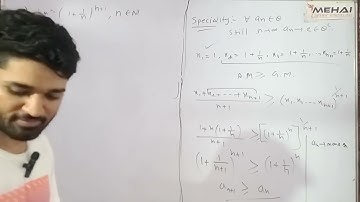 (1+1/n)^{n+1}, n∈N
Speciality:- ∀ an∈Q
still n→∞ an→e∈Q^c
x1=1, x2=1+1/n, x3=1+1/n, ... xn+1=1+1/n
A.M ≥ G.M.
x1+x2+...+xn+1 / n+1 ≥ (x1, x2, ... xn+1)^{1/n+1}
1+n(1+1/n) / n+1 ≥ [(1+1/n)^n]^{1/n+1}
(1+1/n+1)^{n+1} ≥ (1+1/n)^n
an+1 ≥ an
MEHAI